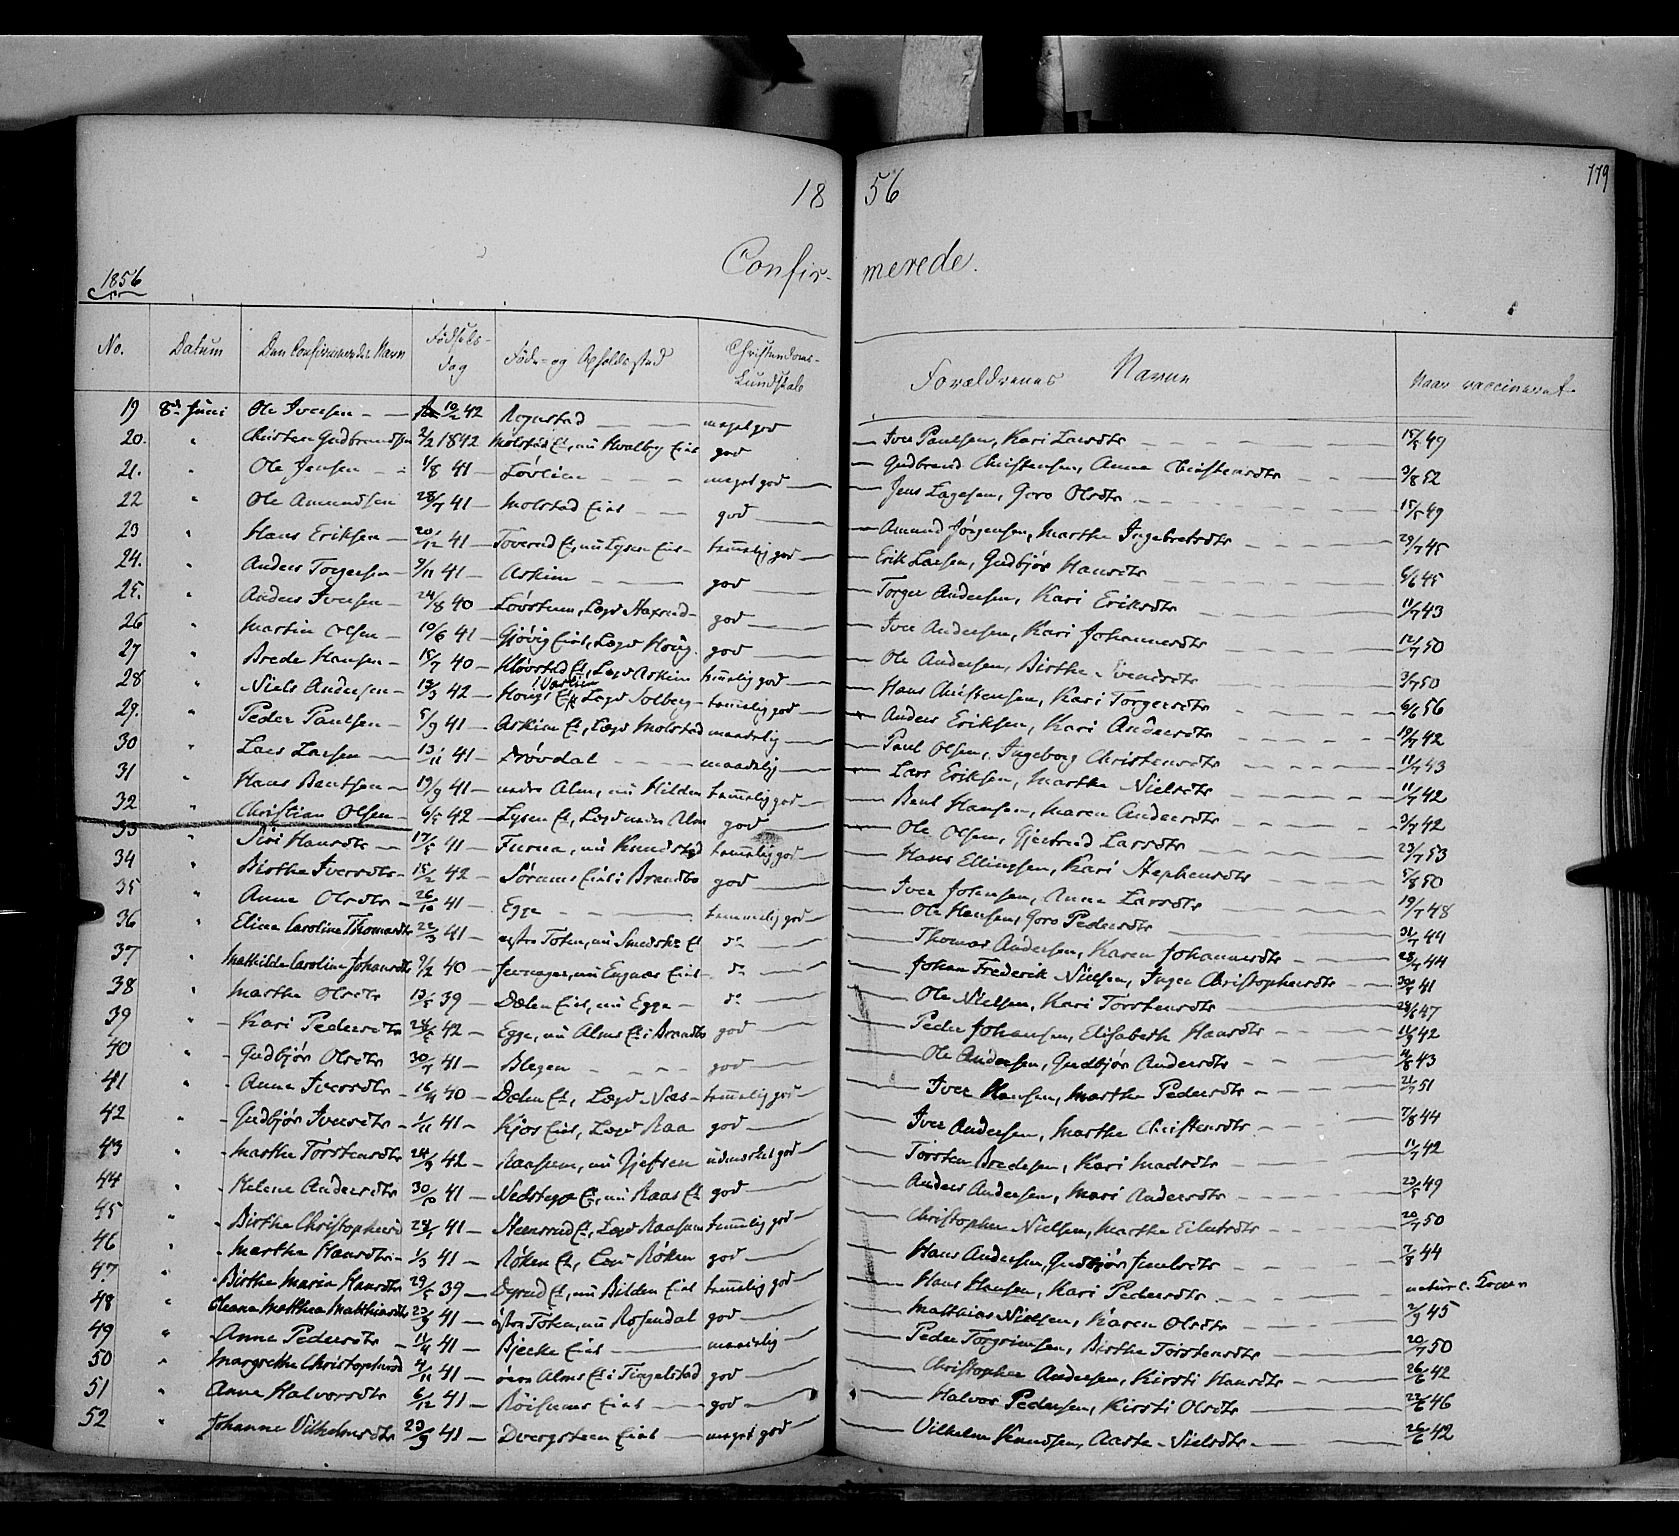 18 56
179
Confir- merede.
1856
No. Datum Den Confirmeredes Navn Fødsels-dag Føde- og Opholdssted Christendoms-Kundskab Forældrenes Navne Naar vaccineret
19 8de Juni Ole Iversen 10/2 42 Rognstad meget god Iver Paulsen, Kari Larsdtr 15/5 49
20. " Christen Gudbrandsen 2/2 1842 Molstad Et, nu Hvalbye Eiet god Gudbrand Christensen, Anne Christensdtr 3/8 52
21. " Ole Jensen 1/8 41 Løvlien meget god Jens Lagesen, Goro Olsdtr 15/5 49
22 " Ole Amundsen 28/7 41 Molstad Eiet god Amund Jørgensen, Marthe Ingebretsdtr 29/7 45
23 " Hans Eriksen 20/12 41 Toverud Et, nu Lysen Eiet temmelig god Erik Larsen, Gudbjør Hansdtr 6/6 45
24. " Anders Torgersen 9/11 41 Askim god Torger Andersen, Kari Eriksdtr 11/7 43
25. " Anders Iversen 24/8 40 god Iver Andersen, Kari Johannesdtr 12/7 50
26 " Martin Olsen 10/6 41 Gjøvig Eiet, Logd Houg god Ole Andersen, Birthe Evensdtr 3/7 50
27 " Brede Hansen 15/7 40 Kløvstad Et, Logd Askim temmelig god Hans Christensen, Kari Torgersdtr 6/6 56
28 " Niels Andersen 13/3 42 Hougs Et, Logd Solberg temmelig god Anders Eriksen, Kari Andersdtr 19/7 42
29. " Peder Paulsen 5/9 41 Askim Et, Logd Molstad maadelig Paul Olsen, Ingeborg Christensdtr 11/7 43
30 " Lars Larsen 13/11 41 Drøvdal maadelig Lars Eriksen, Marthe Nielsdtr 11/7 42
31 " Hans Bentsen 19/9 41 nedre Alm, nu Hilden temmelig god Bent Hansen, Maren Andersdtr 3/7 42
32 " Christian Olsen 6/5 42 Lysen Et, Logd nedre Alm god Ole Olsen, Gjertrud Larsdtr 23/7 53
33 " Siri Hansdtr 17/5 41 Furua, nu Knudstad temmelig god Hans Ellingsen, Kari Stephensdtr 5/8 50
34 " Birthe Iversdtr 15/2 42 Sørums Eiet i Brandbo god Iver Johnsen, Anne Larsdtr 19/7 48
35 " Anne Olsdtr 26/10 41 Egge temmelig god Ole Hansen, Goro Pedersdtr 31/7 44
36 " Eline Caroline Thomasdtr 22/3 41 østre Toten, nu Smedsht Et do Thomas Andersen, Karen Johannesdtr 28/7 44
37 " Mathilde Caroline Johansdtr 9/2 40 Jevnager, nu Eiet do Johan Frederik Nielsen, Inger Christophersdtr 30/5 41
38 " Marthe Olsdtr 13/5 39 Dælen Eiet, nu Egge do Ole Nielsen, Kari Torstensdtr 28/6 47
39 " Kari Pedersdtr 28/5 42 Egge, nu Alms Et i Brandbo god Peder Johansen, Elisabeth Hansdtr 11/9 42
40 " Gudbjør Olsdtr 30/7 41 Blegen god Ole Andersen, Gudbjør Andersdtr 4/8 43
41 " Anne Iversdtr 16/4 40 Dælen Et, Logd Næs temmelig god Iver Hansen, Marthe Pedersdtr 21/7 51
42 " Gudbjør Iversdtr 1/11 41 Kjos Eiet, Logd Raa god Iver Andersen, Marthe Christensdtr 7/8 44
43 " Marthe Torstensdtr 24/3 42 Raasum, nu Gjefsen udmærket god Torsten Bredesen, Kari Madsdtr 11/7 42
44 " Helene Andersdtr 30/10 41 Nedstegt Et, nu Raas Et god Anders Andersen, Mari Andersdtr 23/5 49
45 " Birthe Christophersd 28/1 41 Steensrud Et, Logd Raasum temmelig god Christopher Nielsen, Marthe Eilertsdtr 20/7 50
46 " Marthe Hansdtr 1/3 41 Røken Et, Logd Røken god Hans Andersen, Gudbjør 7/8 44
47 " Birthe Maria Hansdtr 29/5 39 Dyrud Et, nu Bilden Eiet temmelig god Hans Hansen, Kari Pedersdtr naturl. Kopper
48 " Oleane Mathea Matthiasdtr 23/9 41 østre Toten, nu Rosendal god Matthias Nielsen, Karen Olsdtr 2/9 45
49 " Anne Pedersdtr 11/4 41 Bjerke Eiet maadelig Peder Torgrimsen, Birthe Torstensdtr 20/7 50
50 " Margrethe Christophersd 4/11 41 øvre Alms Et i Tingelstad god Christopher Andersen, Kirsti Hansdtr 26/6 42
51 " Anne Halvorsdtr 6/12 41 Røisums Eiet god Halvor Pedersen, Kirsti Olsdtr 22/6 46
52 " Johanne Vilhelmsdtr 23/9 41 Dvergsteen Eiet meget god Vilhelm Knudsen, Aaste Nielsdtr 26/6 42